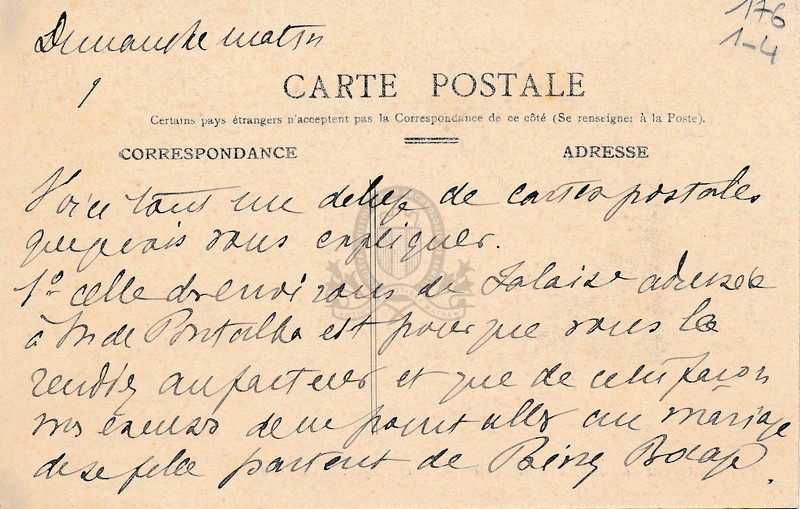 Dimanche matin
176
1-4
CARTE POSTALE
Certains pays étrangers n'acceptent pas la Correspondance de ce côté (Se renseigner à la Poste).
CORRESPONDANCE
ADRESSE
Voici tout une de cartes postales
que je vais vous expliquer.
1º celle des environs de Falaise adressée
à Mr de est pour que vous la
rendiez au facteur et que de cette façon
nos excuses de ne point aller au mariage
de sa fille partent de